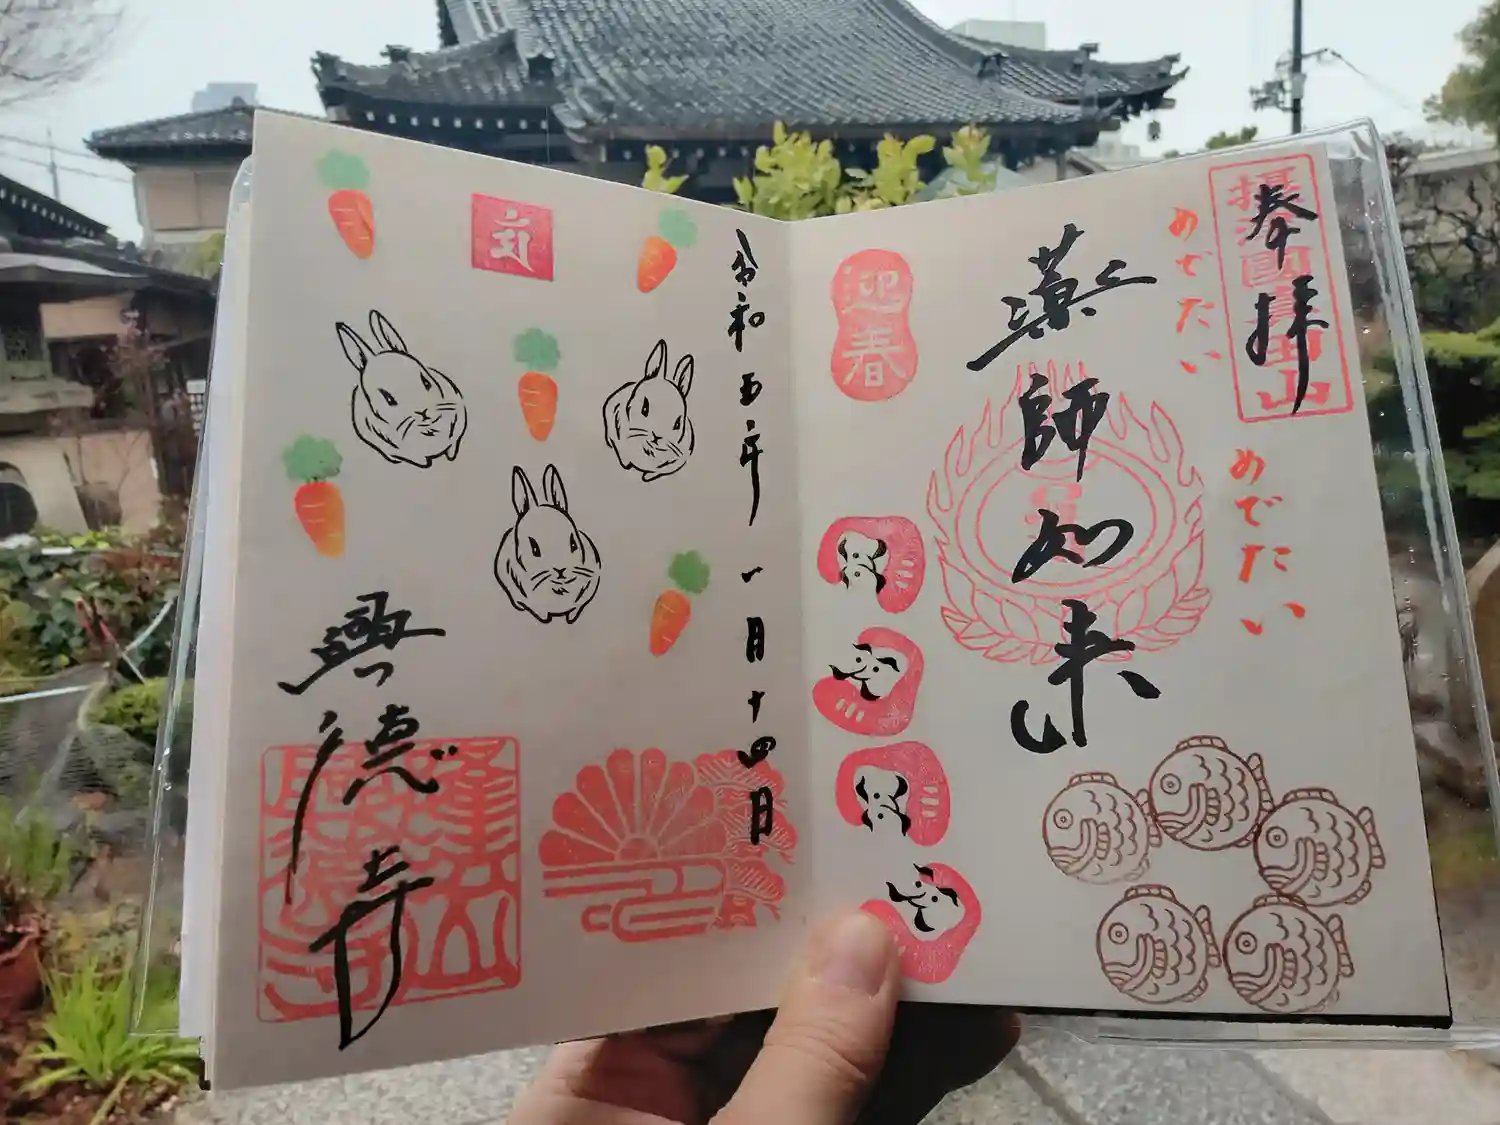 奉拝
摂津國真田山
めでたい
めでたい
薬師如来
迎春
令和五年一月十四日
興徳寺